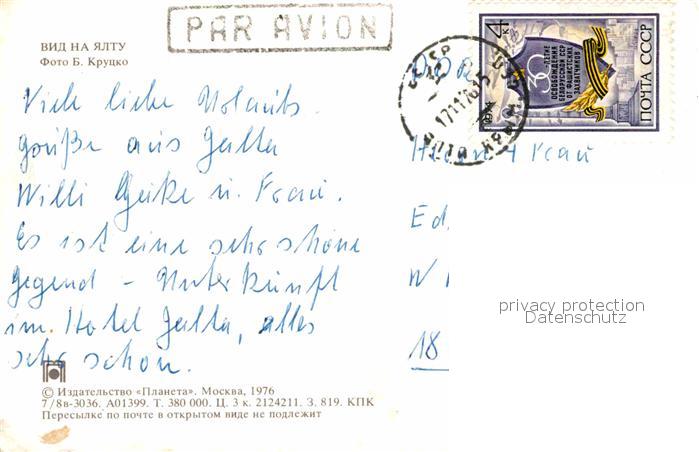 PAR AVION
ВИД НА ЯЛТУ
Фото Б. Круцко
Viele liebe Urlaubs-
grüße aus Jalta
Willi u. Frau.
Es ist eine sehr schöne
Gegend - Unterkunft
im Hotel Jalta, alles
sehr schön.
© Издательство «Планета». Москва, 1976
7/8в-3036. А01399. Т. 380 000. Ц. 3 к. 2124211. З. 819. КПК
Пересылке по почте в открытом виде не подлежит
4 к
30
ЛЕТИЕ
ОСВОБОЖДЕНИЯ
БЕЛОРУССКОЙ ССР
ОТ ФАШИСТСКИХ
ЗАХВАТЧИКОВ
ПОЧТА СССР
Ed
W
18
privacy protection
Datenschutz